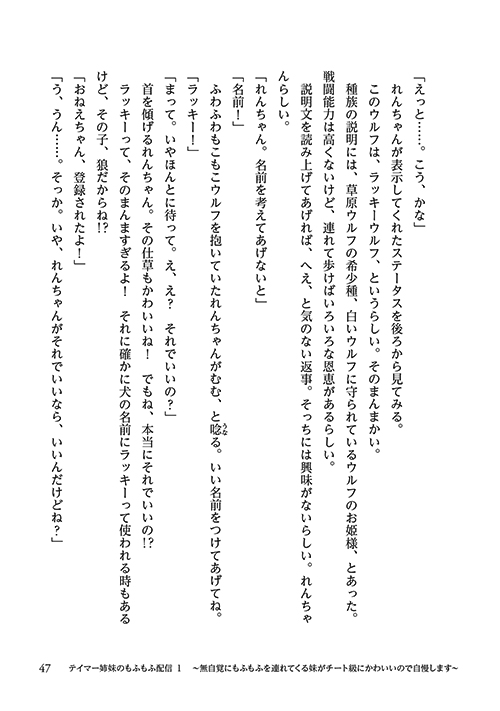 「えっと……。こう、かな」
れんちゃんが表示してくれたステータスを後ろから見てみる。
このウルフは、ラッキーウルフ、というらしい。そのまんまかい。
種族の説明には、草原ウルフの希少種、白いウルフに守られているウルフのお姫様、とあった。
戦闘能力は高くないけど、連れて歩けばいろいろな恩恵があるらしい。
説明文を読み上げてあげれば、へえ、と気のない返事。そっちには興味がないらしい。れんちゃ
んらしい。
「れんちゃん。名前を考えてあげないと」
「名前！」
ふわふわもこもこウルフを抱いていたれんちゃんがむむ、と唸る。いい名前をつけてあげてね。
うな
「ラッキー！」
「まって。いやほんとに待って。え、え？　それでいいの？」
首を傾げるれんちゃん。その仕草もかわいいね！　でもね、本当にそれでいいの!?
ラッキーって、そのまんますぎるよ！　それに確かに犬の名前にラッキーって使われる時もある
けど、その子、狼だからね!?
「おねえちゃん、登録されたよ！」
「う、うん……。そっか。いや、れんちゃんがそれでいいなら、いいんだけどね？」
47　テイマー姉妹のもふもふ配信 1　～無自覚にもふもふを連れてくる妹がチート級にかわいいので自慢します～